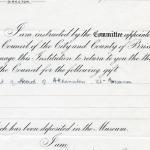 I am instructed by the Committee appoin
Council of the City and County of Bris
nage this Institution to return to you the th
the Council for the following gift
Head of Alexander
ich has been deposited in the Museum.
I am